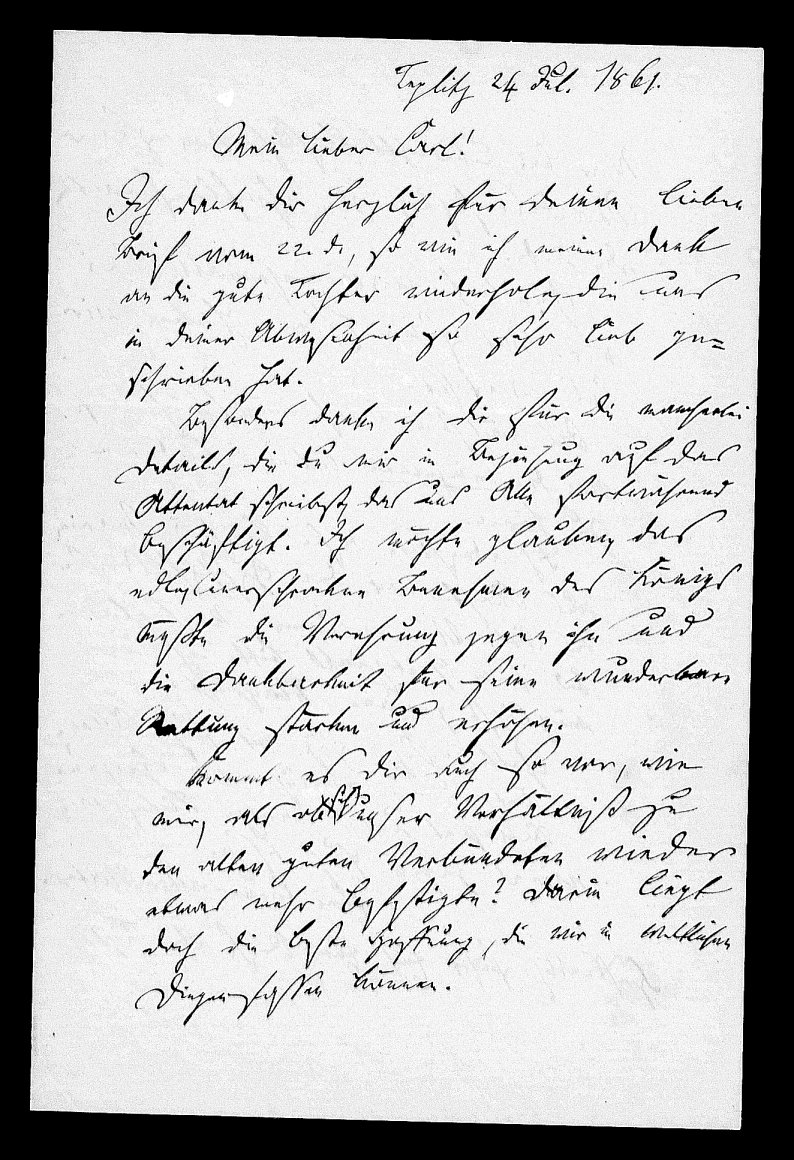 Teplitz 24 Jul. 1861.
Mein lieber Carl!
Ich danke dir herzlich für deinen lieben
Brief vom 22. d., so wie ich meinen Dank
an die gute Tochter wiederhole, die uns
in deiner Abwesenheit so sehr lieb ge=
schrieben hat.
Besonders danke ich dir für die mancherlei
Details, die Du mir in Beziehung auf das
Attentat schreibst, das uns Alle fortwährend
beschäftigt. Ich möchte glauben, das
edle, unerschrockene Benehmen des Königs
müßte die Verehrung gegen ihn und
die Dankbarkeit für seine wunderbare
Rettung stärken und erhöhen.
Kommt es dir auch so vor, wie
mir, als ob sich unser Verhältniß zu
den alten guten Verbündeten wieder
etwas mehr befestigte? Darin liegt
doch die beste Hoffnung, die wir in weltlichen
Dingen fassen können.